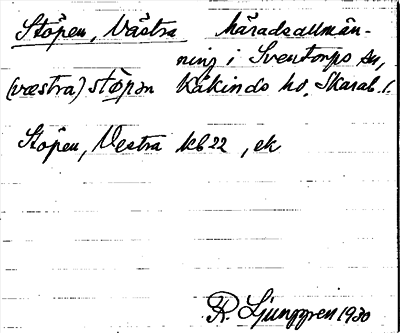 Stöpen, Västra häradsallmän-
ning i Sventorps sn,
(væstra) stöpən Kåkinds hd, Skarab. l.
Stöpen, Vestra kb 22, ek
R. Ljunggren 1930